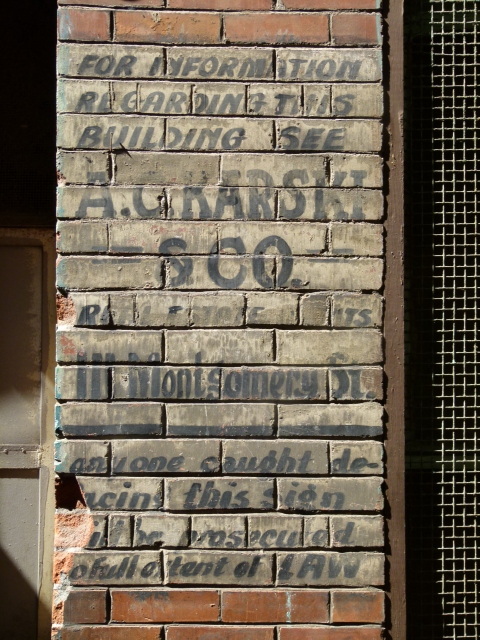 FOR INFORMATION
REGARDING THIS
BUILDING SEE
A.C. KARSKI
& CO.
REAL ESTATE
Montgomery St.
anyone caught de-
facing this sign
will be prosecuted
to full extent of LAW